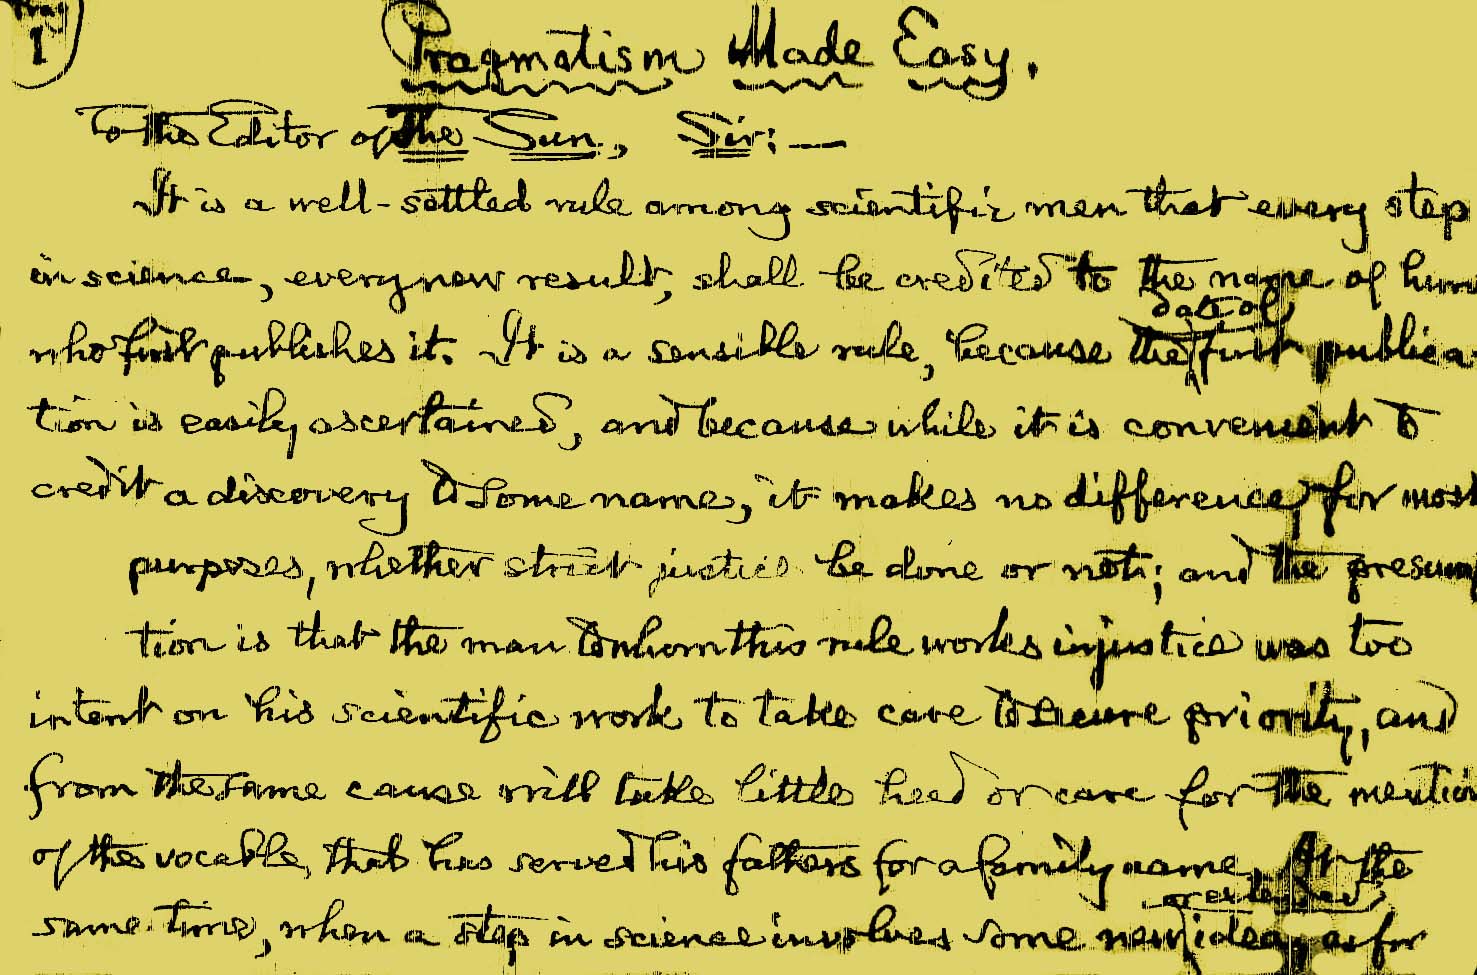 1
Pragmatism Made Easy.
To the Editor of The Sun, Sir:—
It is a well-settled rule among scientific men that every step
in science, every new result, shall be credited to the name of him
date of
who first publishes it. It is a sensible rule, because the first publica-
tion is easily ascertained, and because while it is convenient to
credit a discovery to some name, it makes no difference, for most
purposes, whether strict justice be done or not; and the presump
tion is that the man to whom this rule works injustice was too
intent on his scientific work to take care to secure priority, and
from the same cause will take little heed or care for the mention
of the vocable that has served his fathers for a family name. At the
same time, when a step in science involves some new idea, as for